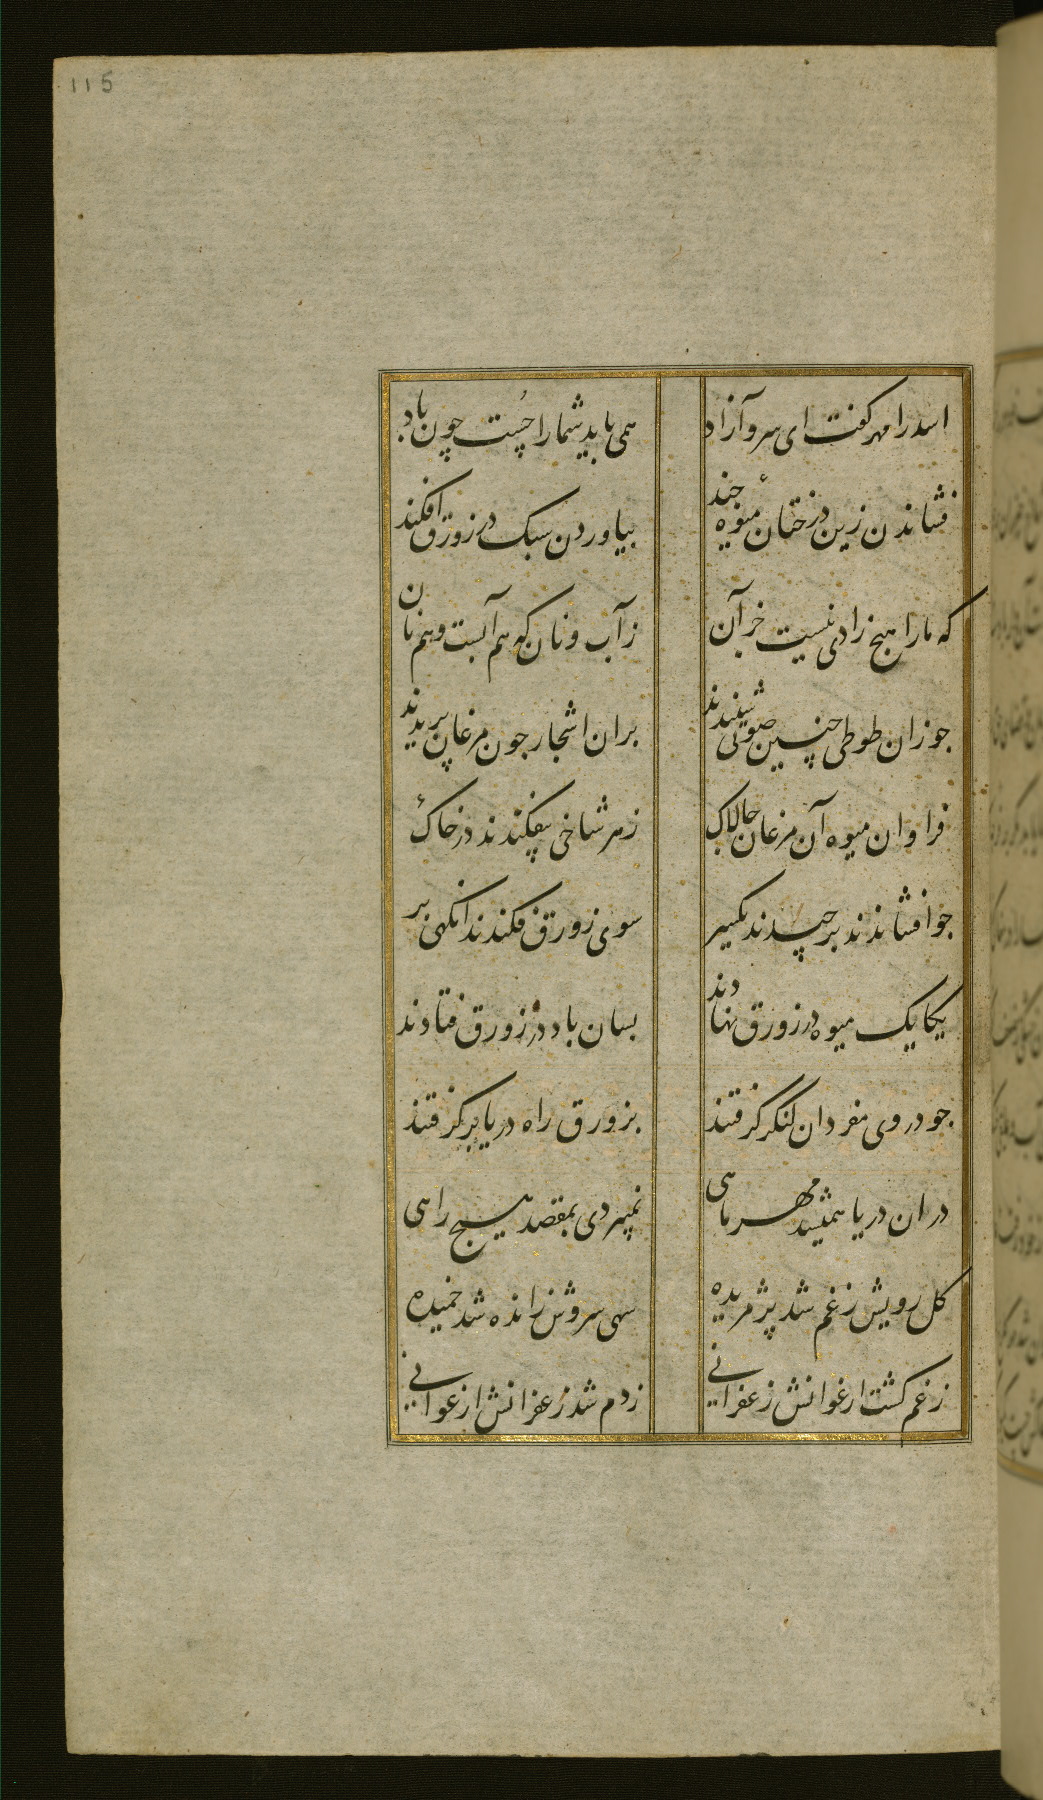 115
اسد را مهر کفت ای سرو آزاد همی باید شما را چُست چون باد
فشاندن زین درختان میوهٔ چند بیاوردن سبک در زورق افکند
که ما را هیچ زادی نیست جز آن ز آب و نان که هم آبست و هم نان
جو زان طوطی چنین صوتی شنیدند بران اشجار جون مرغان پریدند
فراوان میوه آن مرغان جالاک ز هر شاخی بیفکندند در خاک
جو افشاندند بر چیدند یکسر سوی زورق فکندند انکهی بر
یکایک میوه در زورق نهادند بسان باد در زورق فتادند
جو در وی مفردان لنگر گرفتند بزورق راه دریا بر گرفتند
در ان دریا همیشد مهر ماهی نمیبردی بمقصد هیچ راهی
کل رویش ز غم شد پژمریده سهی سروش ز انده شد خمیده
ز غم کشت ارغوانش زعفرانی ز دم شد زعفرانش ارغوانی